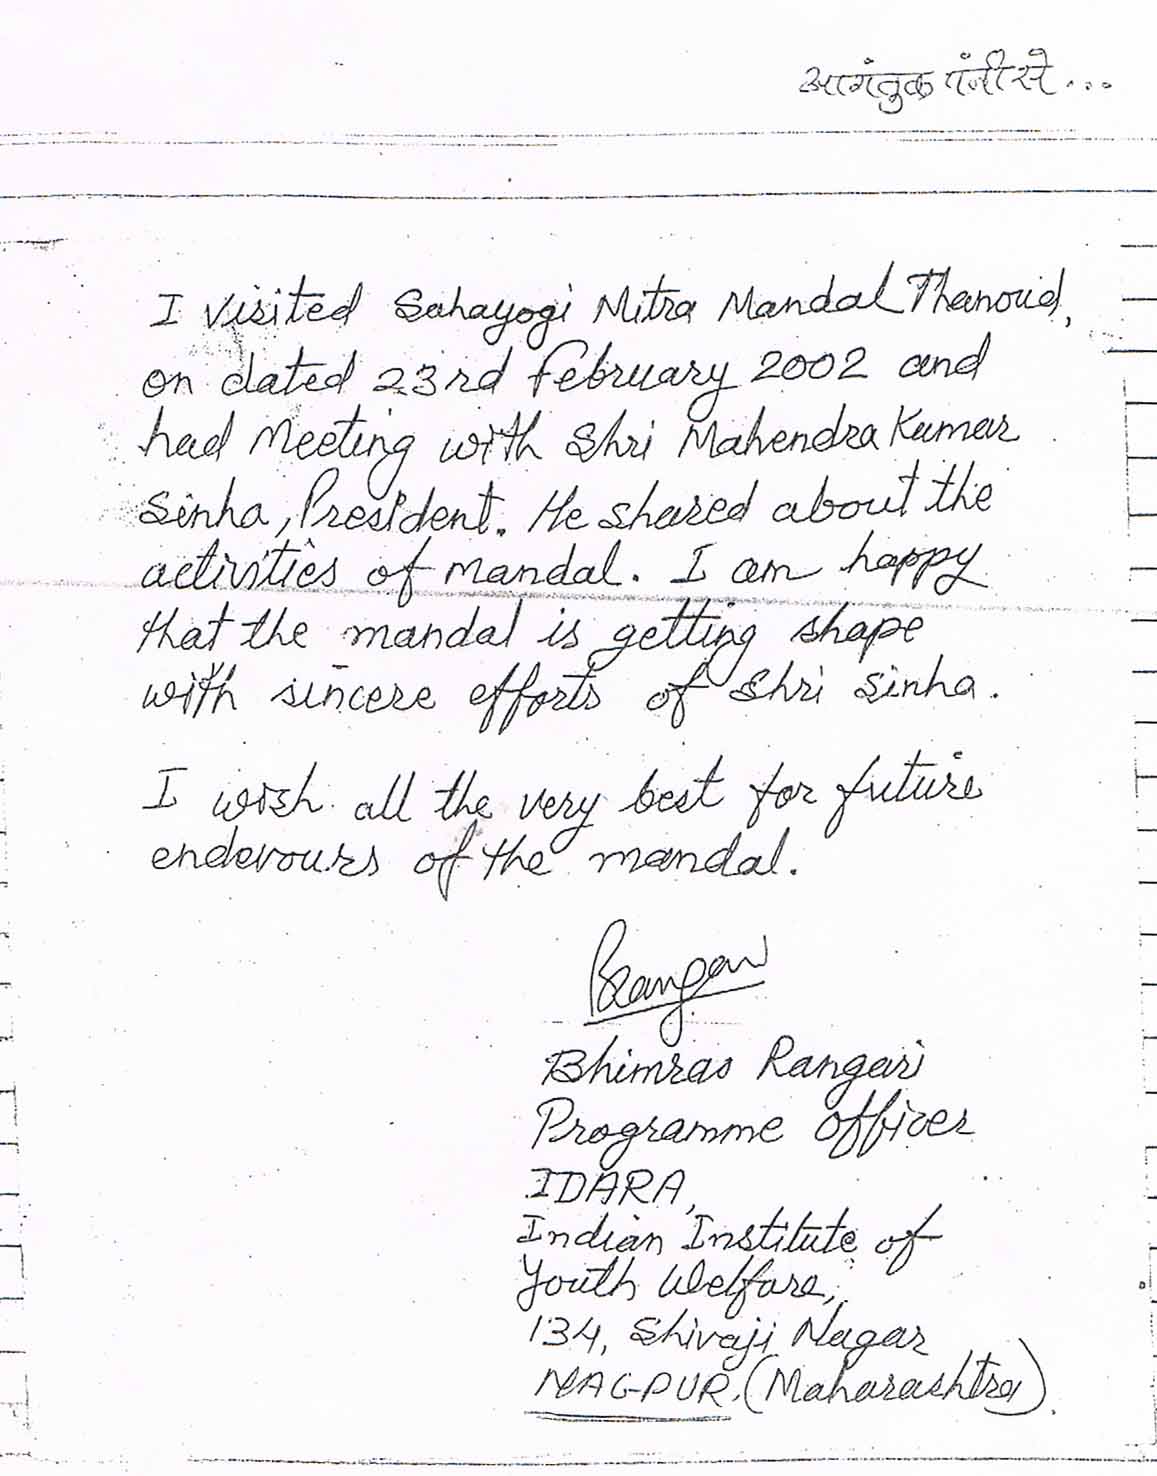 आगंतुक पंजी से...
I visited Sahayogi Mitra Mandal Thanoud,
on dated 23rd February 2002 and
had Meeting with Shri Mahendra Kumar
Sinha, President. He shared about the
activities of mandal. I am happy
that the mandal is getting shape
with sincere efforts of Shri Sinha.
I wish all the very best for future
endevours of the mandal.
BRangari
Bhimrao Rangari
Programme Officer
IDARA,
Indian Institute of
Youth Welfare,
134, Shivaji Nagar
NAGPUR. (Maharashtra).